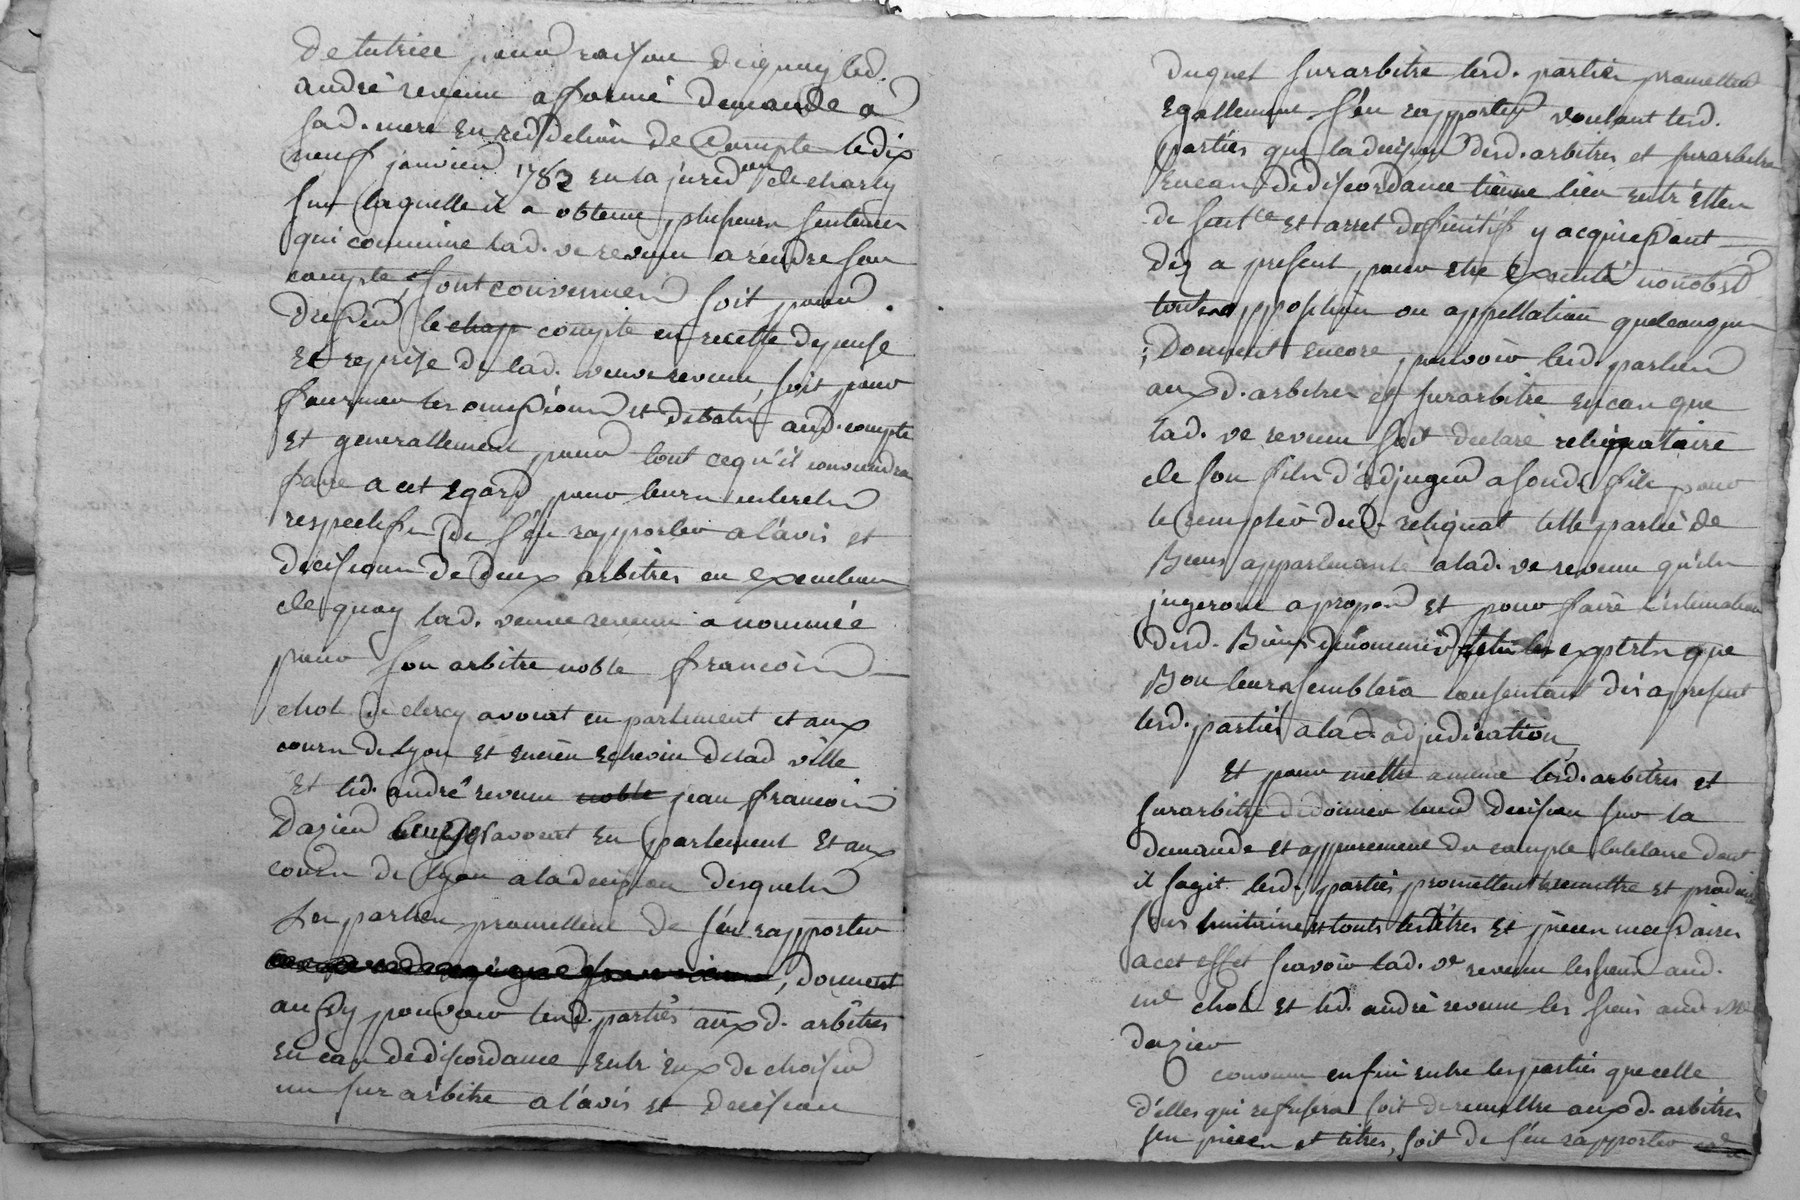 de tutrice pour raison de quoy led.
andré revenu a formé demande a
sad. mere en reddition de compte le dix
neuf janvier 1782 en la jurid.on de charly
sur laquelle il a obtenu plusieurs sentences
qui condamne lad. ve revenu a rendre son
compte, sont convenues soit pour
dresser le chap compte en recette depense
et reprise de lad. veuve revenu, soit pour
fournir les omissions et debats aud. compte
et generallement pour tout ce qu'il conviendra
faire a cet egard pour leurs interets
respectifs de s'en rapporter a l'avis et
decisions de deux arbitres en execution
de quoy lad. veuve revenu a nommée
pour son arbitre noble francois
chol de clercy avocat en parlement et aux
cours de lyon et ancien echevin de lad ville
et led. andré revenu noble jean francois
dazier avocat en parlement et aux
cours de lyon a la decision desquels
les parties promettent de s'en rapporter
, donnent
aussy pouvoir lesd. parties auxd. arbitres
en cas de discordance entr'eux de choisir
un sur arbitre a l'avis et decision
duquel surarbitre lesd. parties promettent
egallement s'en rapporter voulant lesd.
parties que la decision desd. arbitres et surarbitre
en cas de discordance tienne lieu entr'elles
de sent.ce et arret definitif y acquiessant
dez a present pour etre executé nonobst.
toutes opposition ou appellation quelconques
; donnent encore pouvoir lesd. parties
auxd. arbitres et surarbitre en cas que
lad. ve revenu soit declaré reliquataire
de son fils d'adjuger a sond. fils pour
le remploi dud. reliquat telle partie de
Biens appartenants a lad. ve revenu qu'ils
jugeront a propos et pour faire l'estimation
desd. Biens denommer tels experts que
Bon leurs semblera consentant dès a present
lesd. parties a lad adjudication,
Et pour mettre a meme lesd. arbitres et
surarbitre de donner leur decision sur la
demande et appurement du compte tutelaire dont
il s'agit lesd. parties promettent remettre et produire
sous huitaine touts les titres et pieces necessaires
a cet effet scavoir lad. ve revenu les siens aud.
me chol et led. andré revenu les siens aud. me
dazier
convenu enfin entre les parties que celle
d'elles qui refusera soit de remettre auxd. arbitres
ses pieces et titres, soit de s'en rapporter